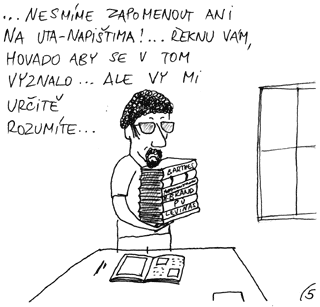 ... NESMÍME ZAPOMENOUT ANI
NA UTA-NAPIŠTIMA!... ŘEKNU VÁM,
HOVADO ABY SE V TOM
VYZNALO... ALE VY MI
URČITĚ
ROZUMÍTE...
BARTHES
LEVINAS
5